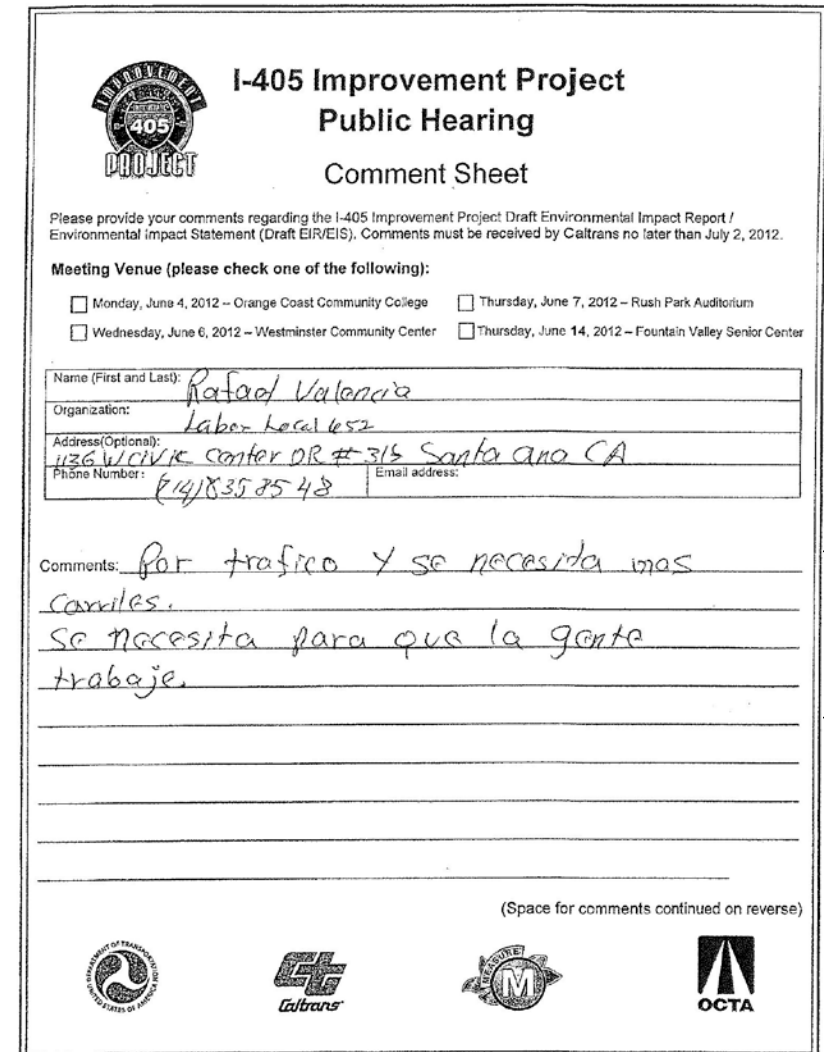 IMPROVEMENT
405
PROJECT
I-405 Improvement Project
Public Hearing
Comment Sheet
Please provide your comments regarding the I-405 Improvement Project Draft Environmental Impact Report /
Environmental Impact Statement (Draft EIR/EIS). Comments must be received by Caltrans no later than July 2, 2012.
Meeting Venue (please check one of the following):
Monday, June 4, 2012 – Orange Coast Community College
Thursday, June 7, 2012 – Rush Park Auditorium
Wednesday, June 6, 2012 – Westminster Community Center
Thursday, June 14, 2012 – Fountain Valley Senior Center
Name (First and Last): Rafael Valencia
Organization: Labor Local 652
Address(Optional): 1136 W CIVIC Center DR # 315 Santa ana CA
Phone Number: (714) 835 8548
Email address:
Comments: Por trafico y se necesita mas
carriles.
Se necesita para que la gente
trabaje.
(Space for comments continued on reverse)
DEPARTMENT OF TRANSPORTATION
UNITED STATES OF AMERICA
Caltrans
MEASURE
M
OCTA